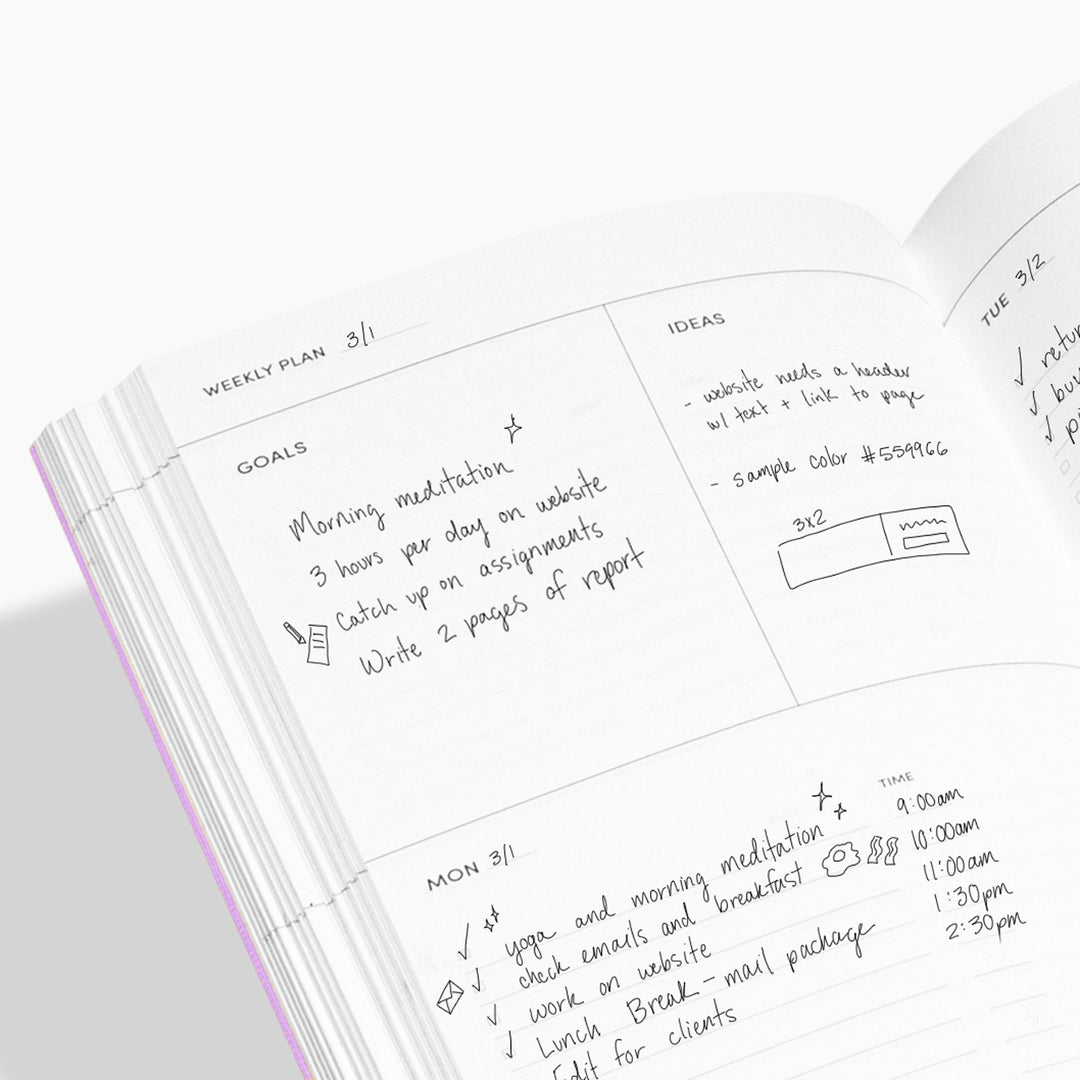 WEEKLY PLAN 3/1
GOALS
Morning meditation
3 hours per day on website
Catch up on assignments
Write 2 pages of report
IDEAS
- website needs a header
w/ text + link to page
- sample color #559966
3x2
MON 3/1
TIME
yoga and morning meditation 9:00am
check emails and breakfast 10:00am
work on website 11:00am
Lunch Break - mail package 1:30pm
Edit for clients 2:30pm
TUE 3/2